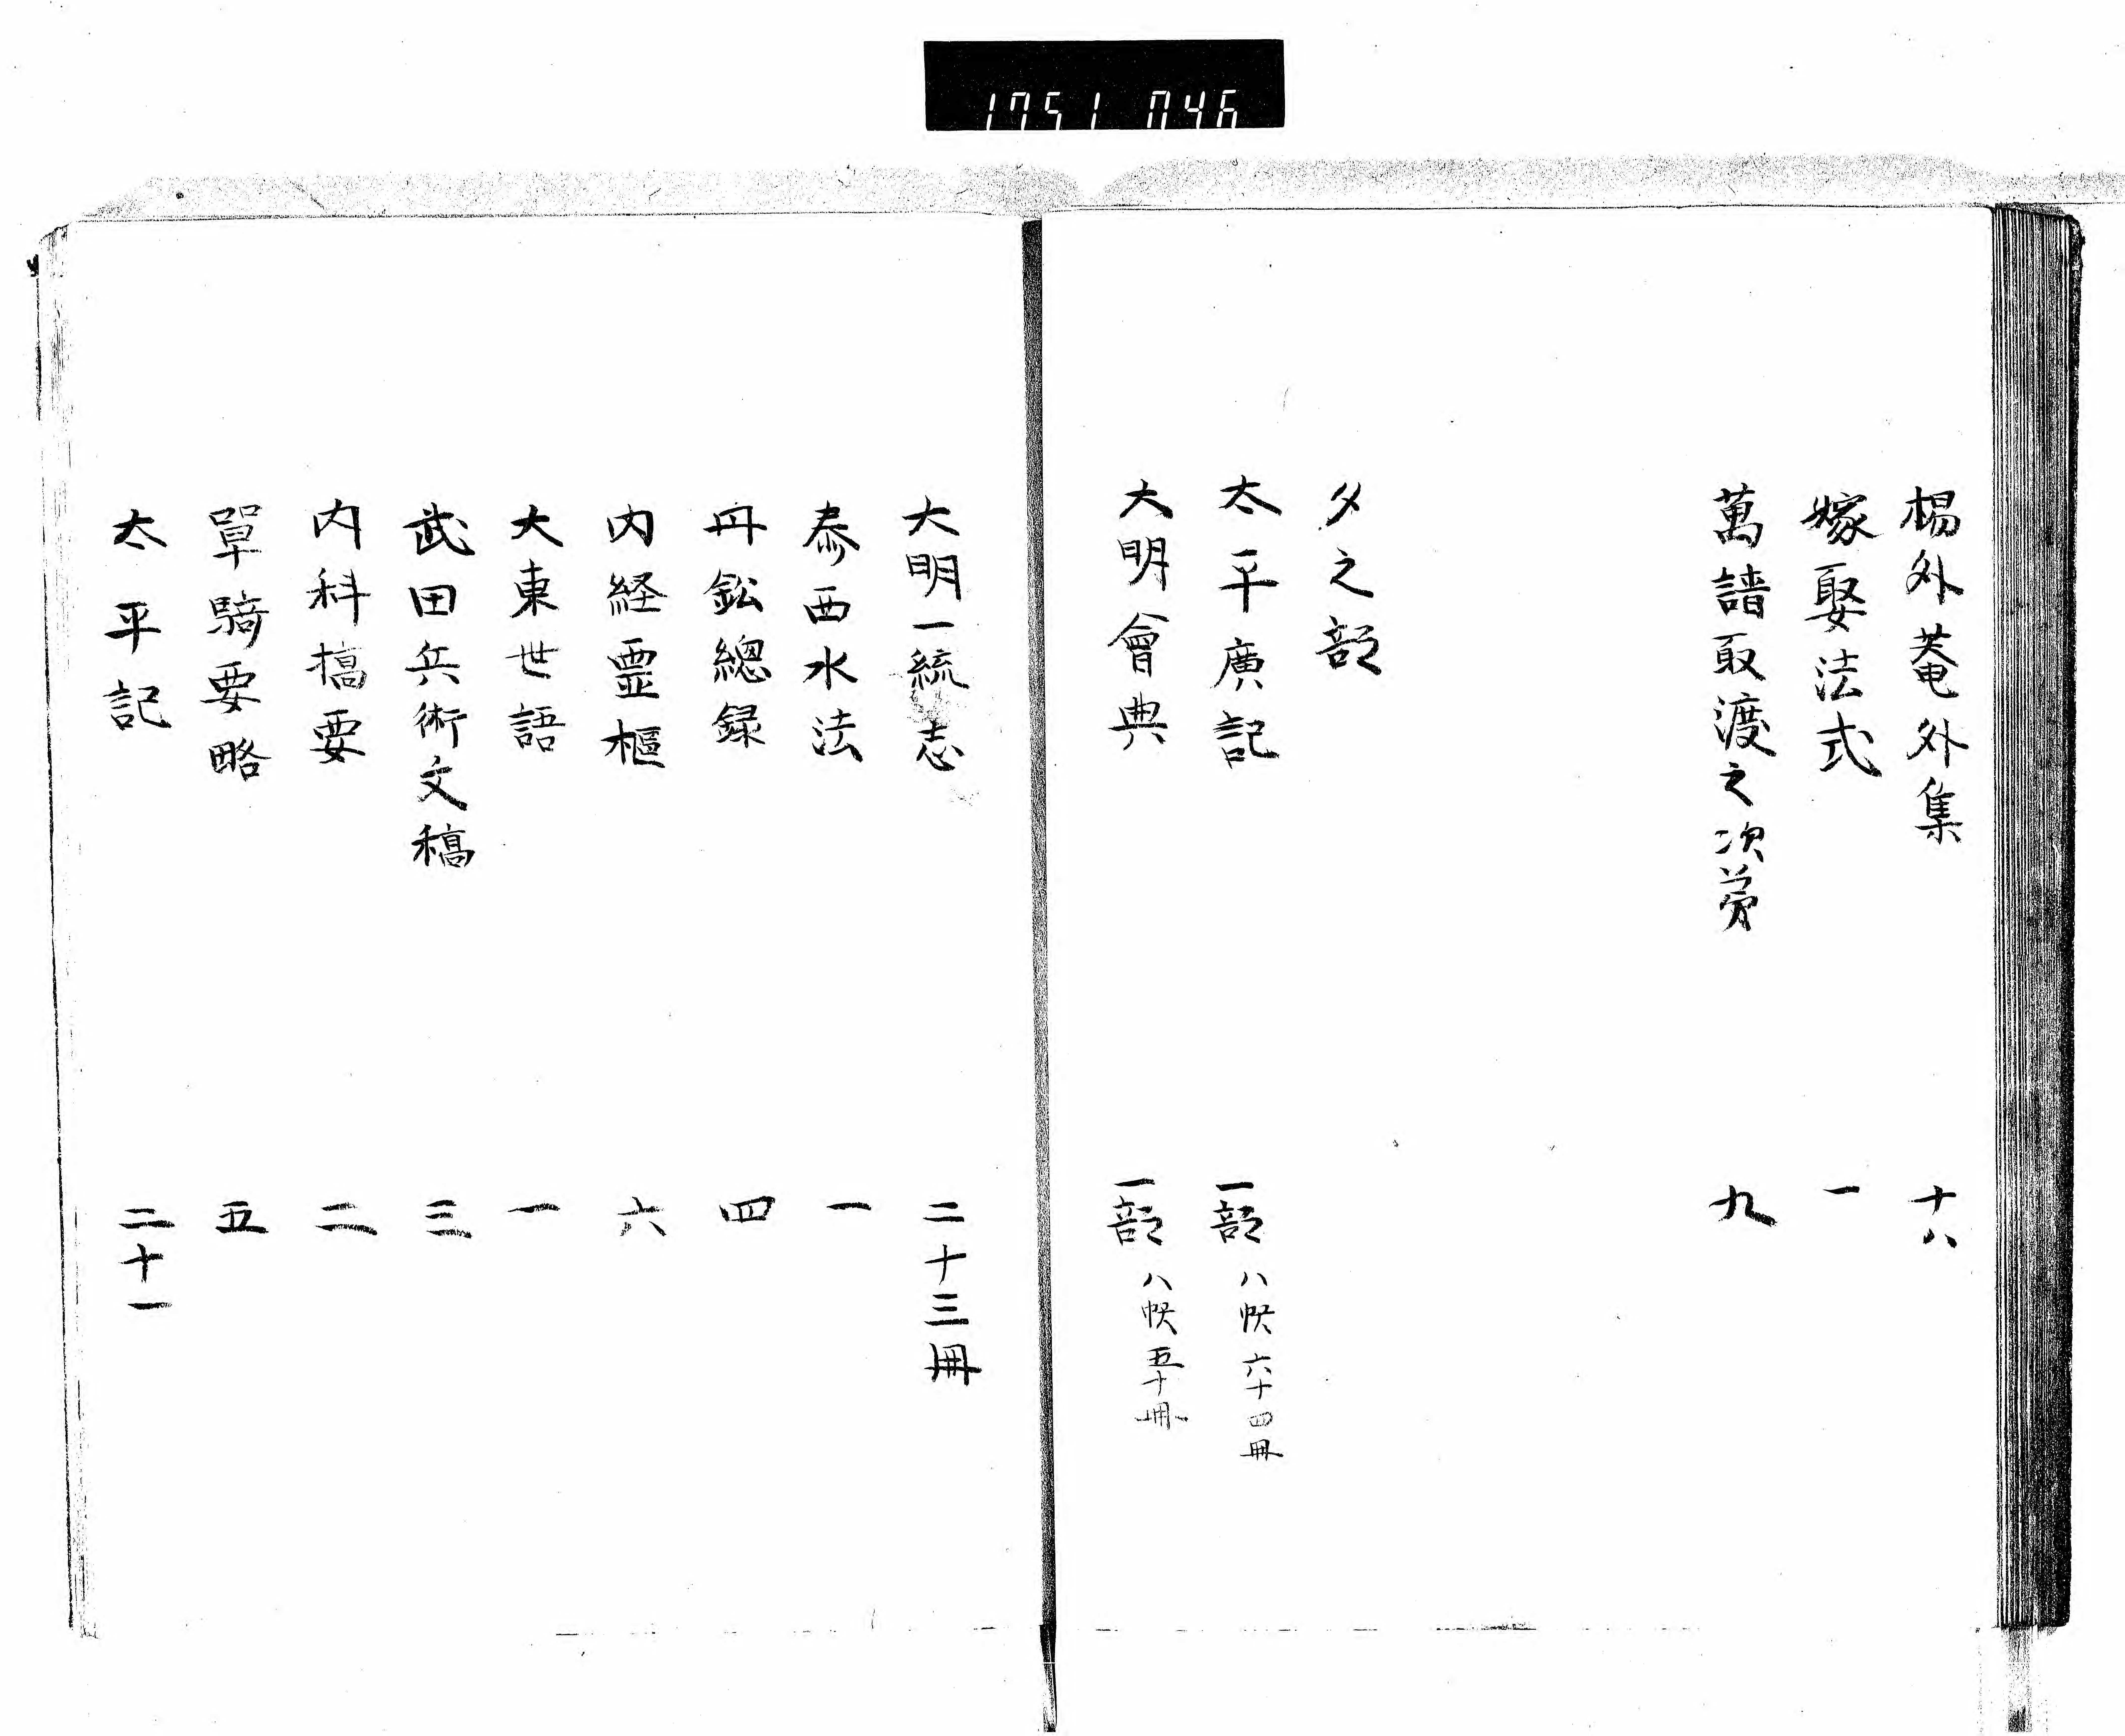 1751 046
楊外菴外集 十八
嫁娶法式 一
萬請取渡之次第 九
タ之部
太平廣記 一部 八帙 六十四冊
大明會典 一部 八帙 五十冊
大明一統志 二十三冊
泰西水法 一
丹鉛總録 四
内経霊樞 六
大東世語 一
武田兵術文稿 三
内科摘要 二
單騎要略 五
太平記 二十一